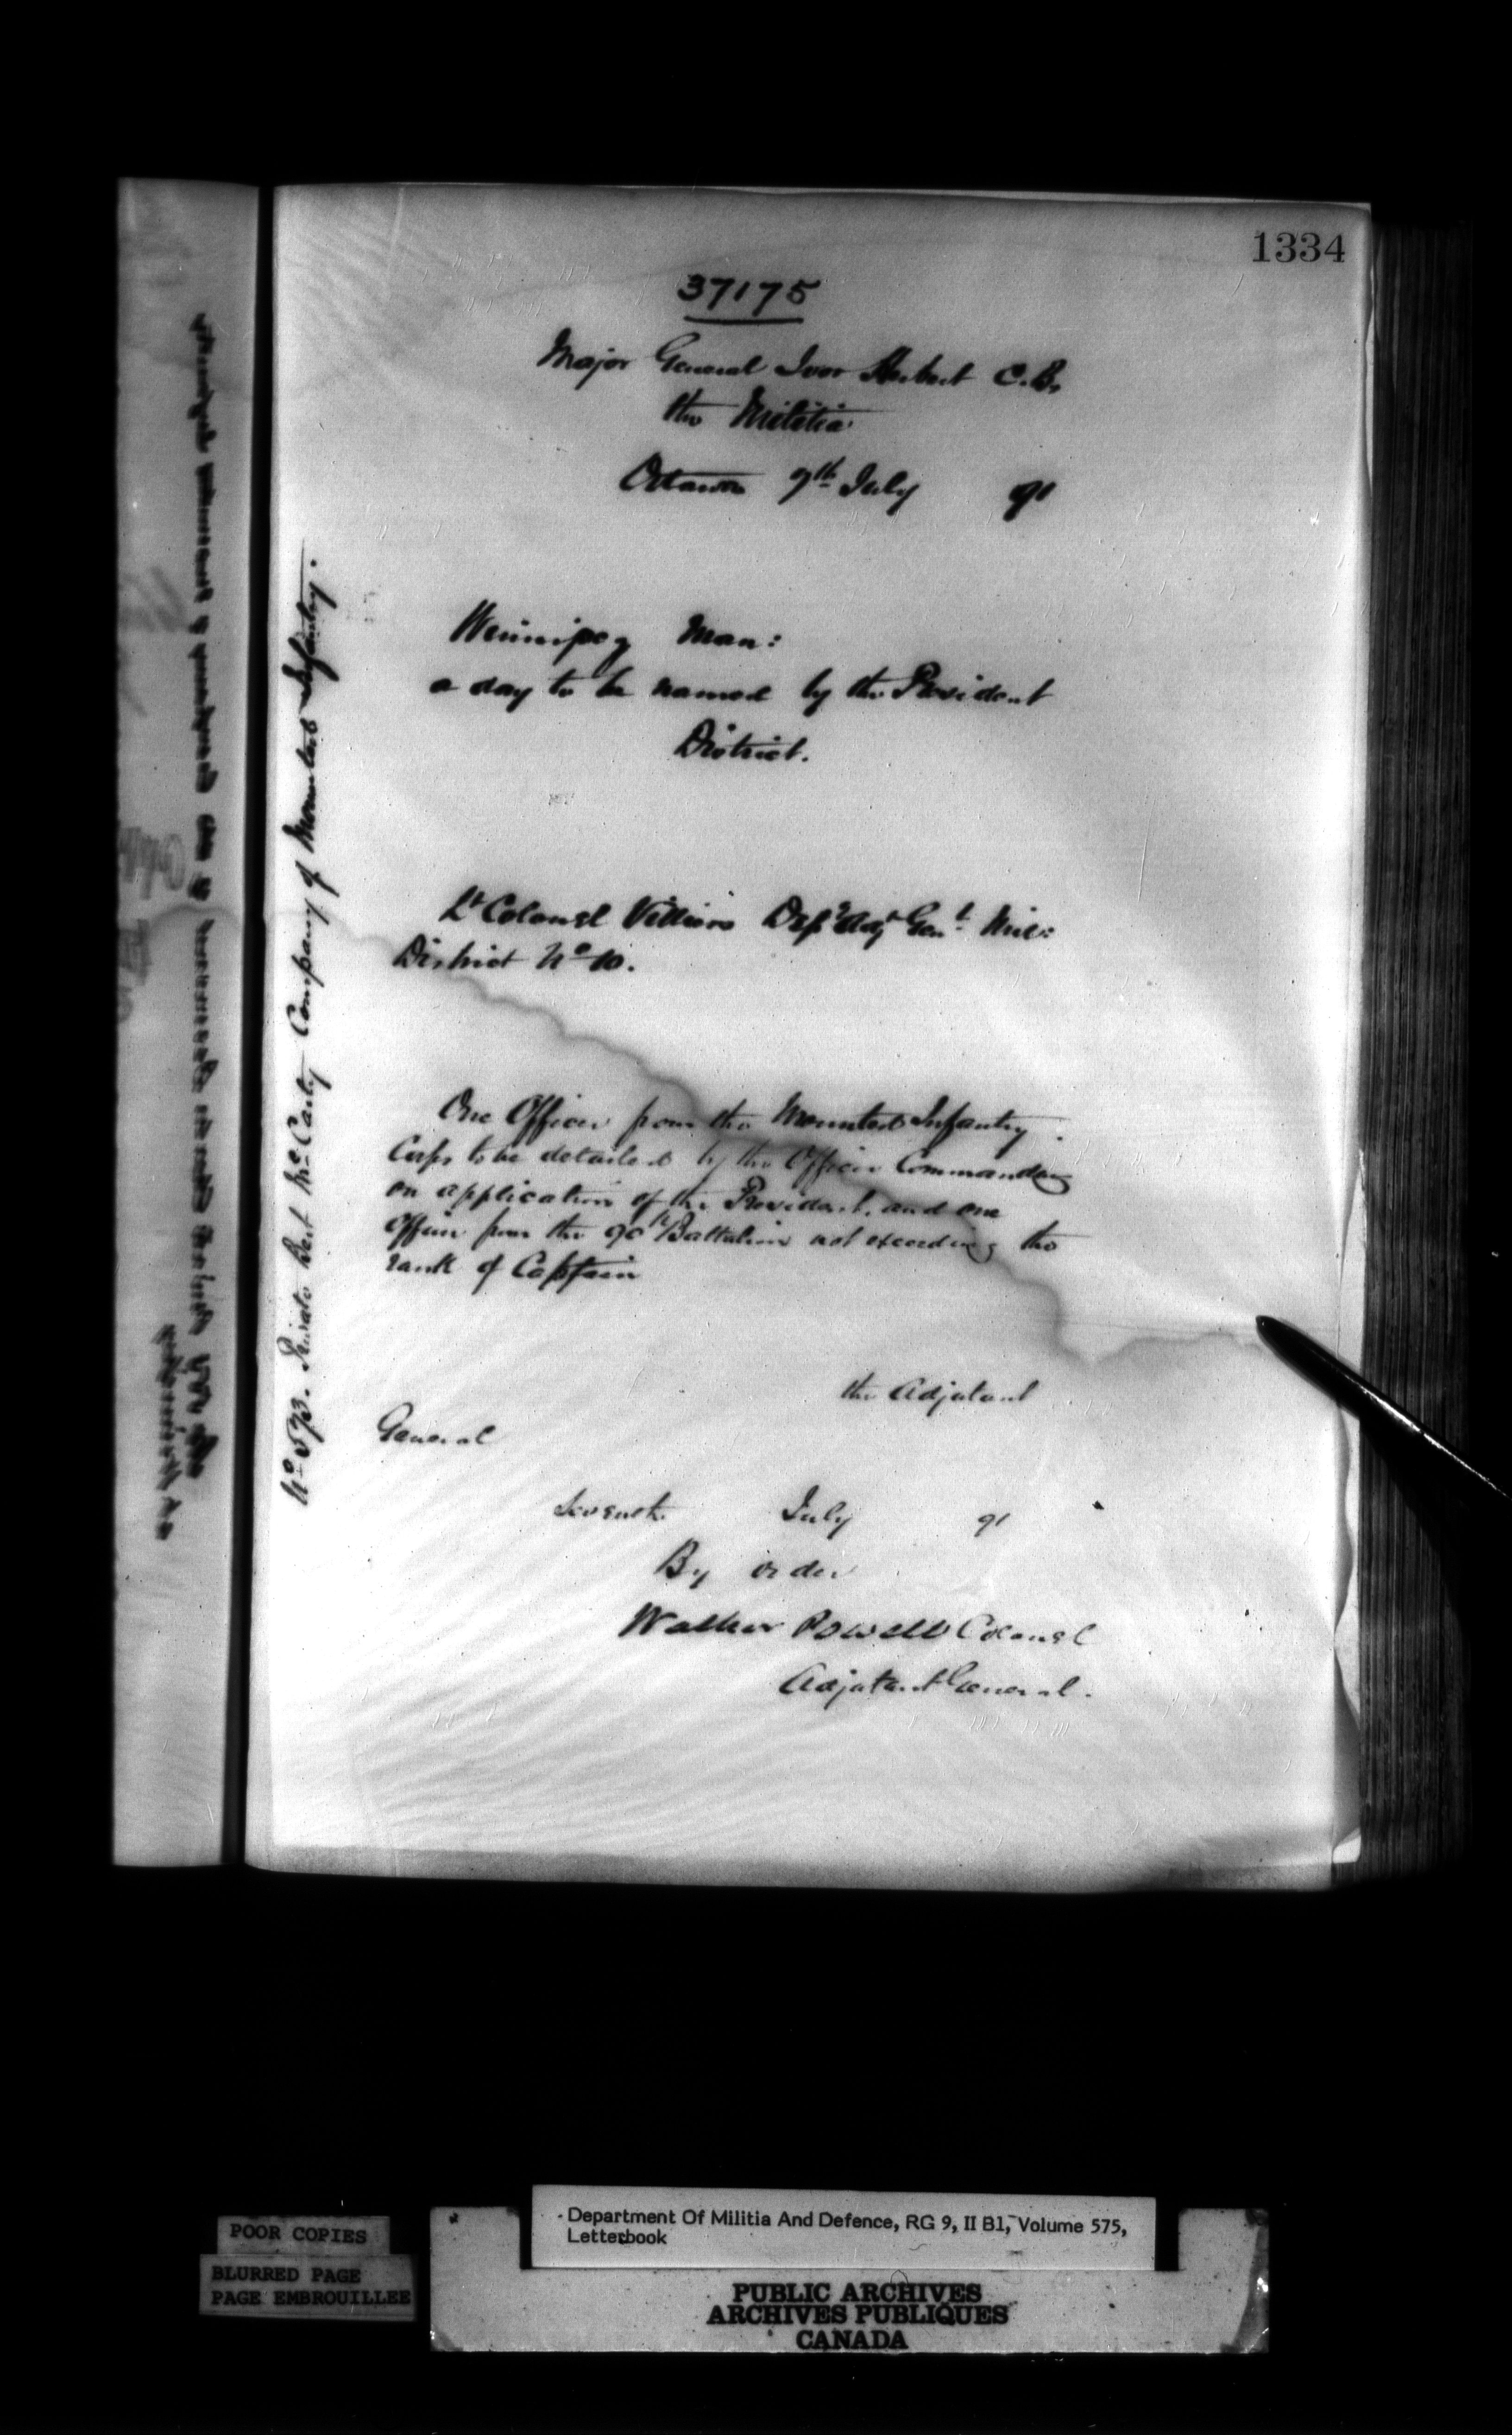 1334
37175
Major General Ivor Herbert C.B.
the Militia
Ottawa 7th July 91
Winnipeg Man:
a day to be named by the President
District.
Lt Colonel Villiers Depy Adjt Genl Mil:
District No 10.
One Officer from the Mounted Infantry
Corps to be detailed by the Officer Commanding
on application of the President, and one
Officer from the 90th Battalion not exceeding the
rank of Captain
the Adjutant
General
Seventh July 91
By order
Walker Powell Colonel
Adjutant General.
Private McCarty Company of Mounted Infantry.
POOR COPIES
BLURRED PAGE
PAGE EMBROUILLEE
Department Of Militia And Defence, RG 9, II B1, Volume 575,
Letterbook
PUBLIC ARCHIVES
ARCHIVES PUBLIQUES
CANADA